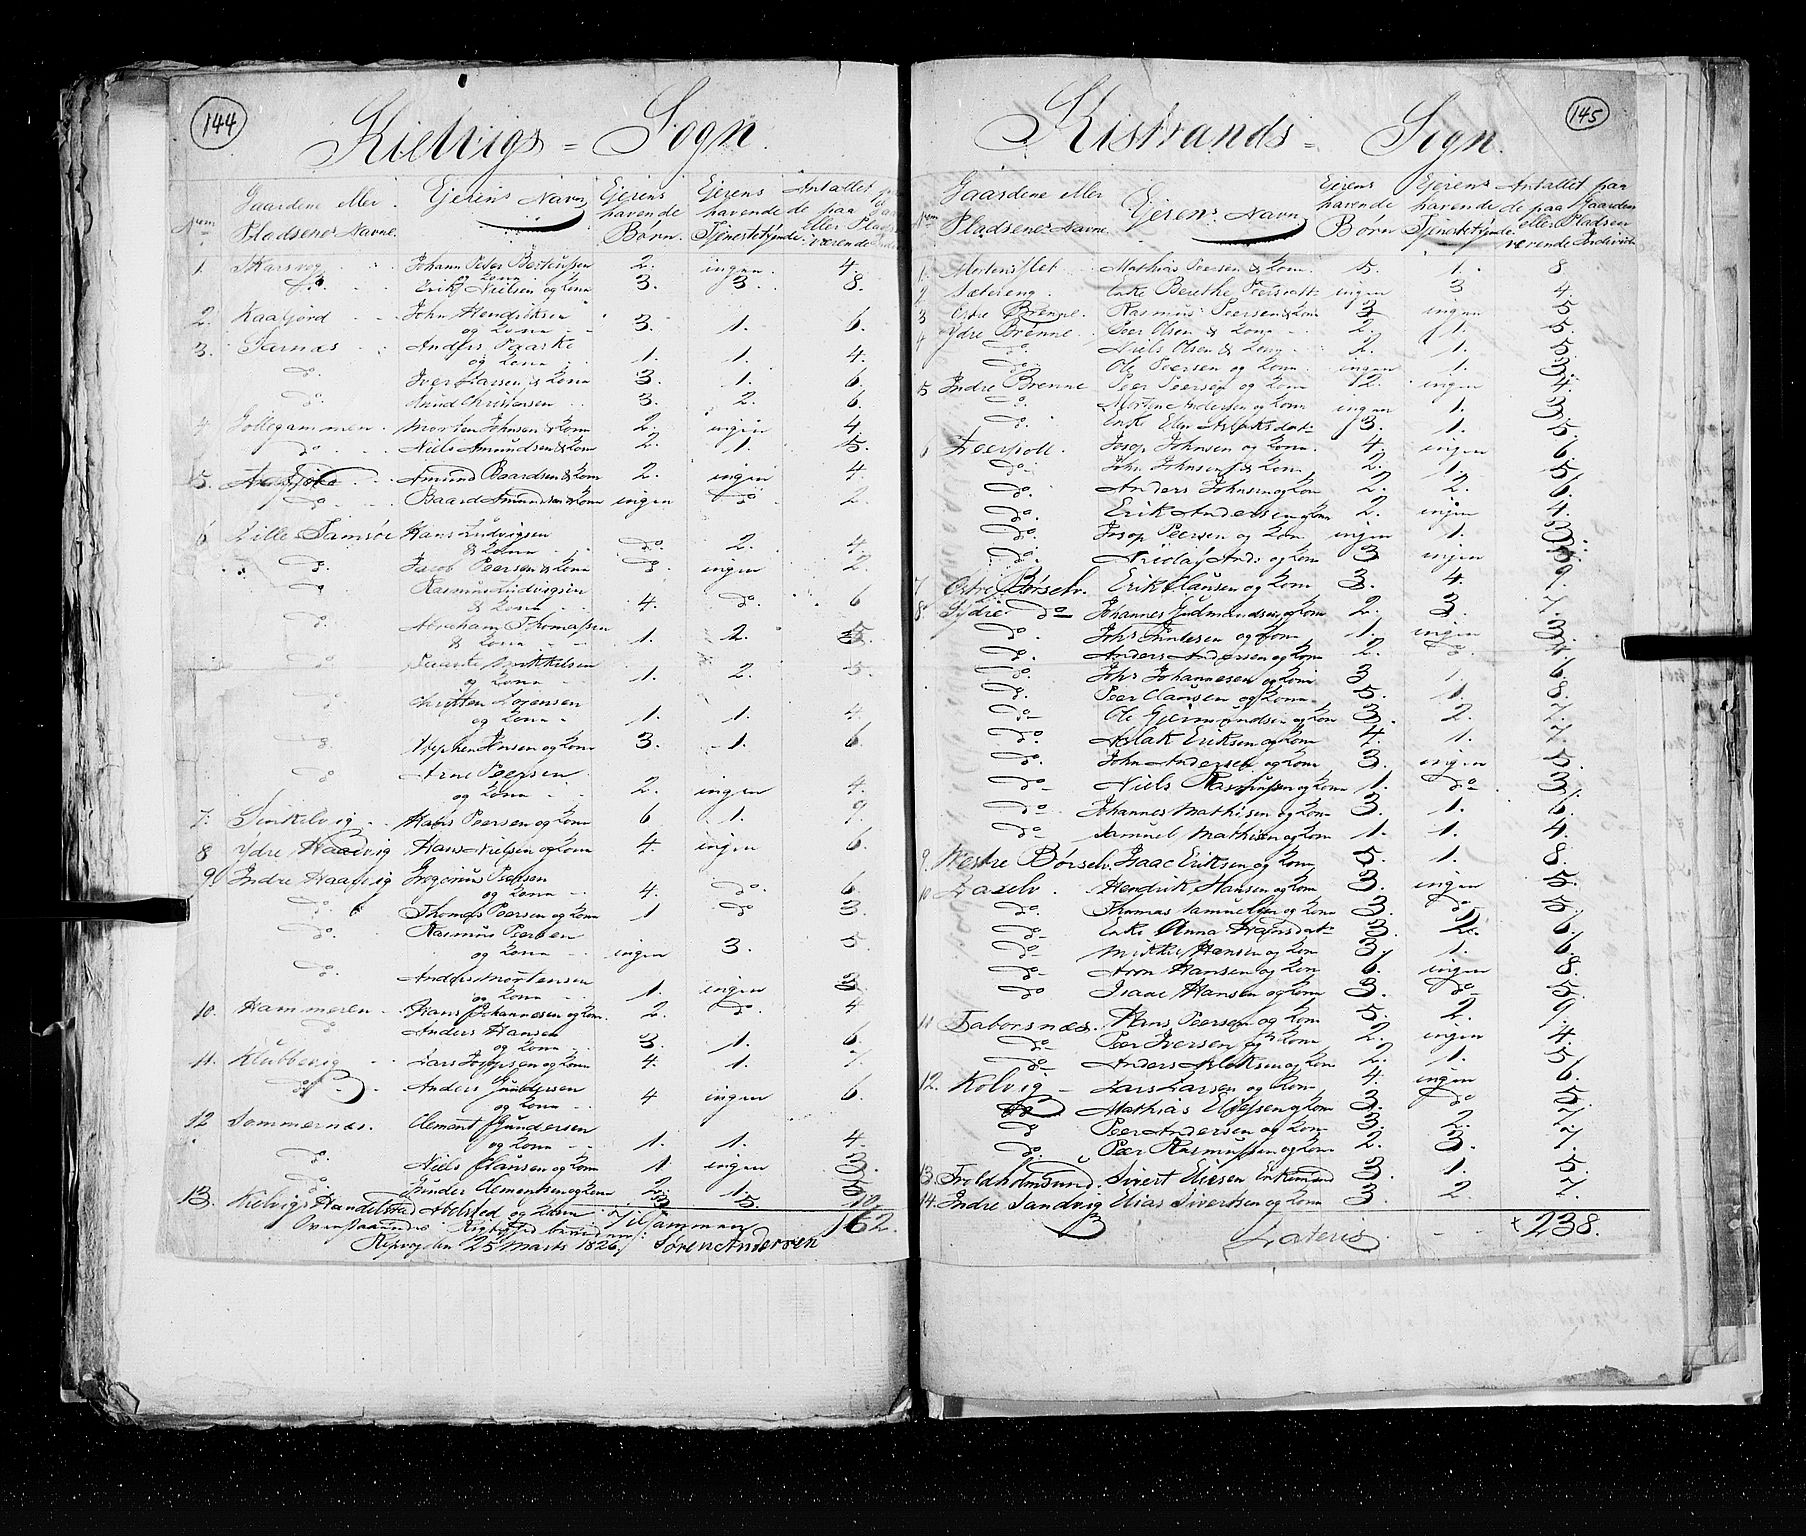 144
Kielvigs = Sogn.
Num Gaardene eller Pladsenes Navne. Ejerens Navn Ejerens havende Børn. Ejerens havende Tjenestetynde. Antallet de paa eller værende
1. Skarsvog Johann Peter 2. ingen 4.
do. Erik Nielsen og Kone 3. 3. 8.
2. Kaafjord John Hendriksen og Kone 3. 1. 6.
3. Sarnæs Anders Paaske og Kone 1. 1. 4.
do. Iver Larsen & Kone 3. 1. 6.
do. Knud Christensen 3. 2. 6.
4 Morten Johnsen & Kone 2. ingen 4.
do. Niels Amundsen & Kone 2. 1. 5.
5. Amund Baardsen & Kone 2. ingen 4
do. Baard Amundsen & Kone ingen do 2
6 Lille Tamsøe Hans Ludvigsen & Kone do. 2. 4
do. Jacob Peersen & Kone do. ingen 2.
do Rasmus Ludvigsen & Kone 4. do. 6
do. Abraham Thomassen & Kone 1. 2. 5.
do Mikkelsen og Kone 1. 2. 5.
do Christen Sørensen og Kone 1. 1. 4.
do Stephen Hansen og Kone 3. 1. 6.
do Arne Peersen og Kone 2. ingen 4.
7. Sinkelvig Hans Peersen og Kone 6 1. 9
8 Ydre Haavig Hans Nielsen og Kone 4. ingen 6.
9 Indre Haavig Gregorius Peersen og Kone 4. do. 6.
do. Thomas Peersen og Kone 1 do 3.
do. Rasmus Peersen og Kone ingen 3. 5.
do. Anders Mortensen og Kone 1. ingen 3
10. Hammeren Hans Johannesen og Kone 2. do. 4
do Anders Hansen og Kone 3. 1. 6.
11. Klubbevig Lars Josepsen og Kone 4. 1. 7.
do Anders Gundersen og Kone 4 ingen 6.
12 Sommernæs. Clemant Gundersen og Kone 1. 1. 4.
do. Niels Hansen og Kone 1 ingen 3.
do. Gunder Clemantsen og Kone 2. 1. 5
13. Kielvigs Handelsted og Kone 3. 5. 10.
Tilsammen 162.
den 25 Marts 1826. Søren Andersen
145
Kistrands = Sogn.
Num Gaardene eller Pladsenes Navne. Ejerens Navn Ejerens havende Børn Ejerens havende Tjenestetynde. Antallet de paa Gaarden eller Pladsen værende
1. Mathias Peersen & Kone 5. 1. 8.
2 Sætereng. Enke Berethe Peersdatt ingen 3 4.
3 Østre Brenne. Rasmus Peersen & Kone 3 ingen 5
4 Ydre Brenne Peer Olsen & Kone 2. 1. 5.
do Niels Olsen & Kone 2. 1. 5.
do. Ole Peersen og Kone. ingen 1. 3.
5 Indre Brenne Peer Peersen og Kone 2. ingen 4.
do. Morten Andersen og Kone ingen 1. 3.
do. Enke Ellen Aslaksdat 3. 1. 5.
6 Josop Johnsen og Kone. 4. ingen 6.
do. John Johnsen & Kone 2. 1. 5.
do. Anders Johnsen og Kone 2. 2. 6.
do. Erik Andersen og Kone 2. ingen 4.
do. Josop Peersen og Kone ingen 1. 3.
do Nicolay And: og Kone 3 ingen 5.
7 Østre Børselv. Erik Clausen og Kone 3. 4. 9.
8. Ydre do Johannes Gudmundsen og Kone 2. 3. 7.
do. og Kone 1. ingen 3.
do. Anders Andersen og Kone 2. do. 4.
do. Johs Johannesen og Kone 3 1. 6.
do. Peer Clausen og Kone 5. 1. 8.
do Ole og Kone 3. 2. 7.
do. Aslak Eriksen og Kone 4. 1. 7.
do. John Andersen og Kone 3. ingen 5.
do Niels Rasmussen og Kone 1. do 3.
do. Johannes Mathisen og Kone 3. 1. 6.
do. Samuel Mathisen og Kone 1. 1. 4.
9. Vestre Børselv. Isaac Eriksen og Kone 5. 1. 8.
10 Laxelv. Hendrik Hansen og Kone 3. ingen 5.
do. Thomas Samuelsen og Kone 3. do 5.
do Enke Anna Hansdat 3. 2. 6.
do Mikkel Hansen og Kone 3. 1. 6.
do Aron Hansen og Kone 6. ingen 8.
do Isaac Hansen og Kone 3. do 5.
11 Hans Peersen og Kone 5. 2. 9.
do Peer Iversen og Kone 2. ingen 4.
do Anders Aslaksen og Kone 2. 1. 5
12. Kolvig Lars Larsen og Kone 4. ingen 6.
do Mathias og Kone 3. do 5.
do Peer Andersen og Kone 3. 2. 7
do. Peer Rasmussen og Kone 2. 3. 7
13. Troldholmsund. Sivert Eliesen Enkemand 3. 1. 5.
14. Indre Sandvig Elias Sivertsen og Kone 3 2 7.
Lateris 238.